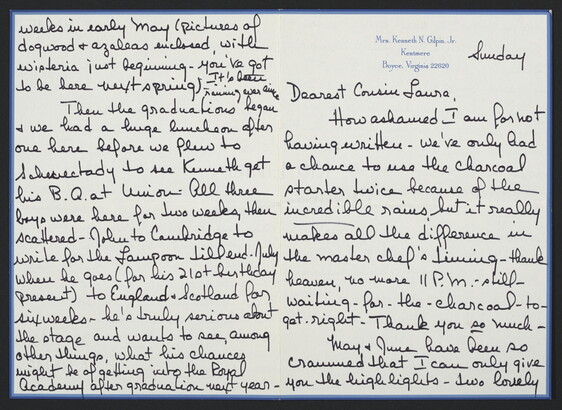 Mrs. Kenneth N. Gilpin, Jr.
Kentmere
Boyce, Virginia 22620
Sunday
Dearest Cousin Laura,
How ashamed I am for not
having written - we've only had
a chance to use the charcoal
starter twice because of the
incredible rains, but it really
makes all the difference in
the master chef's timing - thank
heaven, no more 11 P.M. - still -
waiting - for - the - charcoal - to -
get - right - Thank you so much -
May & June have been so
crammed that I can only give
you the highlights - two lovely
weeks in early May (pictures of
dogwood & azaleas enclosed, with
wisteria just beginning - you've got
to be here next spring)
It's been
raining ever since
Then the graduations began
& we had a huge luncheon after
one here before we flew to
Schenectady to see Kenneth get
his B.A. at Union - All three
boys were here for two weeks, then
scattered - John to Cambridge to
write for the Lampoon till end - July
when he goes (for his 21st birthday
present) to England & Scotland for
six weeks - he's truly serious about
the stage and wants to see, among
other things, what his chances
might be of getting into the Royal
Academy after graduation next year -